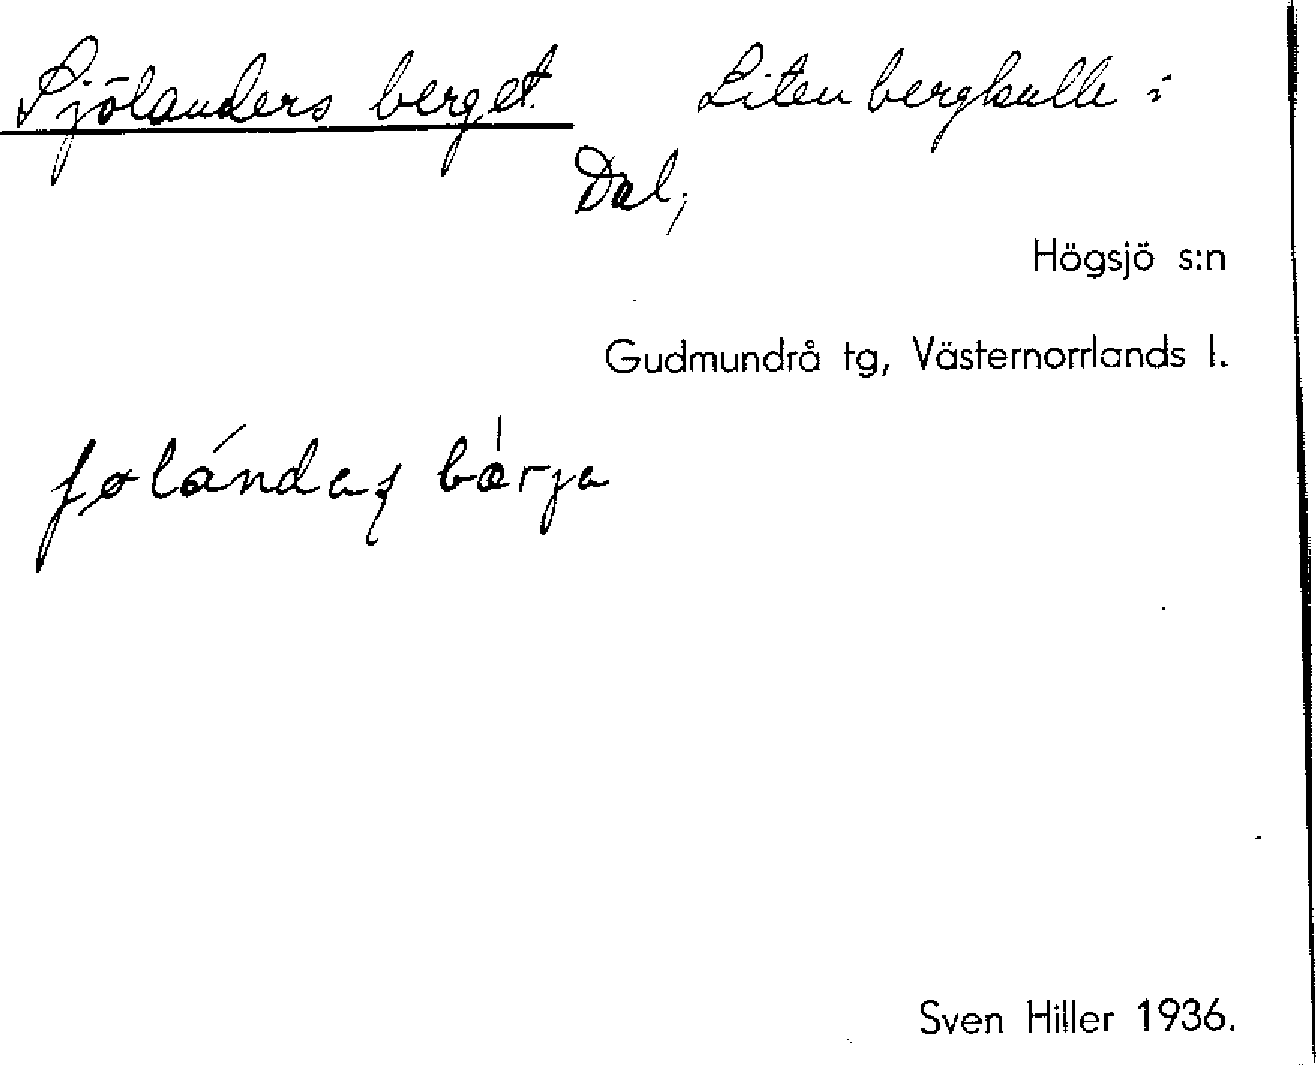 Sjölanders berget. Liten bergkulle i
Dal,
Högsjö s:n
Gudmundrå tg, Västernorrlands l.
ʃølándaʂ bǽrja
Sven Hiller 1936.